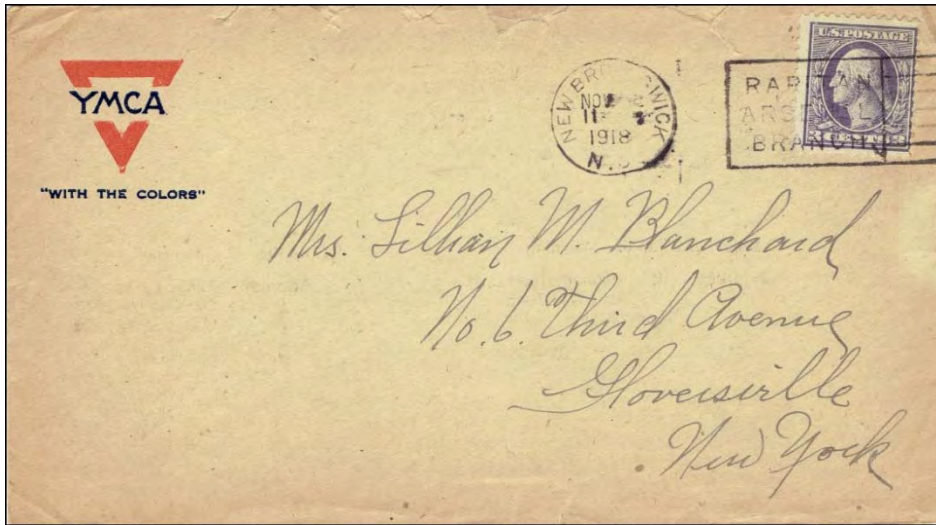 YMCA
"WITH THE COLORS"
NEW BRUNSWICK
NOV
11
1918
N.J.
RARITAN
ARSENAL
BRANCH
U.S. POSTAGE
CENTS
Mrs. Lillian M. Blanchard
No. 6. Third Avenue
Gloversville
New York